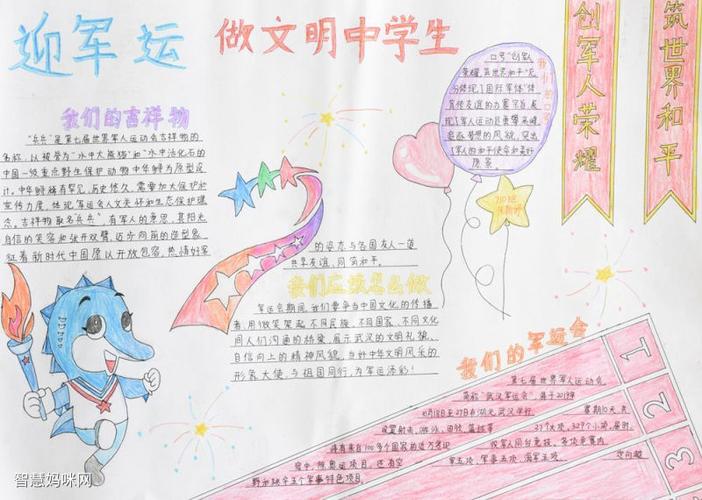 迎军运 做文明中学生
我们的吉祥物
"兵兵"是第七届世界军人运动会吉祥物的
名称,以被誉为"水中大熊猫"和"水中活化石"的
中国一级重点野生保护动物中华鲟为原型设
计。中华鲟稀有罕见,历史悠久,需要加大保护和
宣传力度,体现军运会人文关怀和生态保护理
念。吉祥物取名兵兵,有军人的意思,其阳光
自信的笑容和张开双臂,迈步向前的造型象
征着新时代中国愿以开放包容,热情好客
的姿态与各国友人一道
共享友谊,同筑和平。
我们应该怎么做
军运会期间,我们要争当中国文化的传播
者,用微笑架起不同民族、不同国家、不同文化
间人们沟通的桥梁,展示武汉的文明礼貌、
自信向上的精神风貌,当好中华文明风采的
形象大使,与祖国同行,为军运添彩!
我们的口号
口号"创军人
荣耀,筑世界和平"充
分体现了国际军体"体
育传友谊"的办赛宗旨,展
创军人荣耀
筑世界和平
我们的军运会
第七届世界军人运动会
简称"武汉军运会",将于2019年
10月18日至27日在湖北武汉举行,
赛期10天,共
设置射击、游泳、田径、篮球等
27个大项、329个小项。届时,
将有来自100多个国家的近万名现
役军人同台竞技。各项竞赛内
容中,除奥运项目,还有空
军五项、军事五项、海军五项、
定向越
野和跳伞5个军事特色项目。
1
2
3
智慧妈咪网